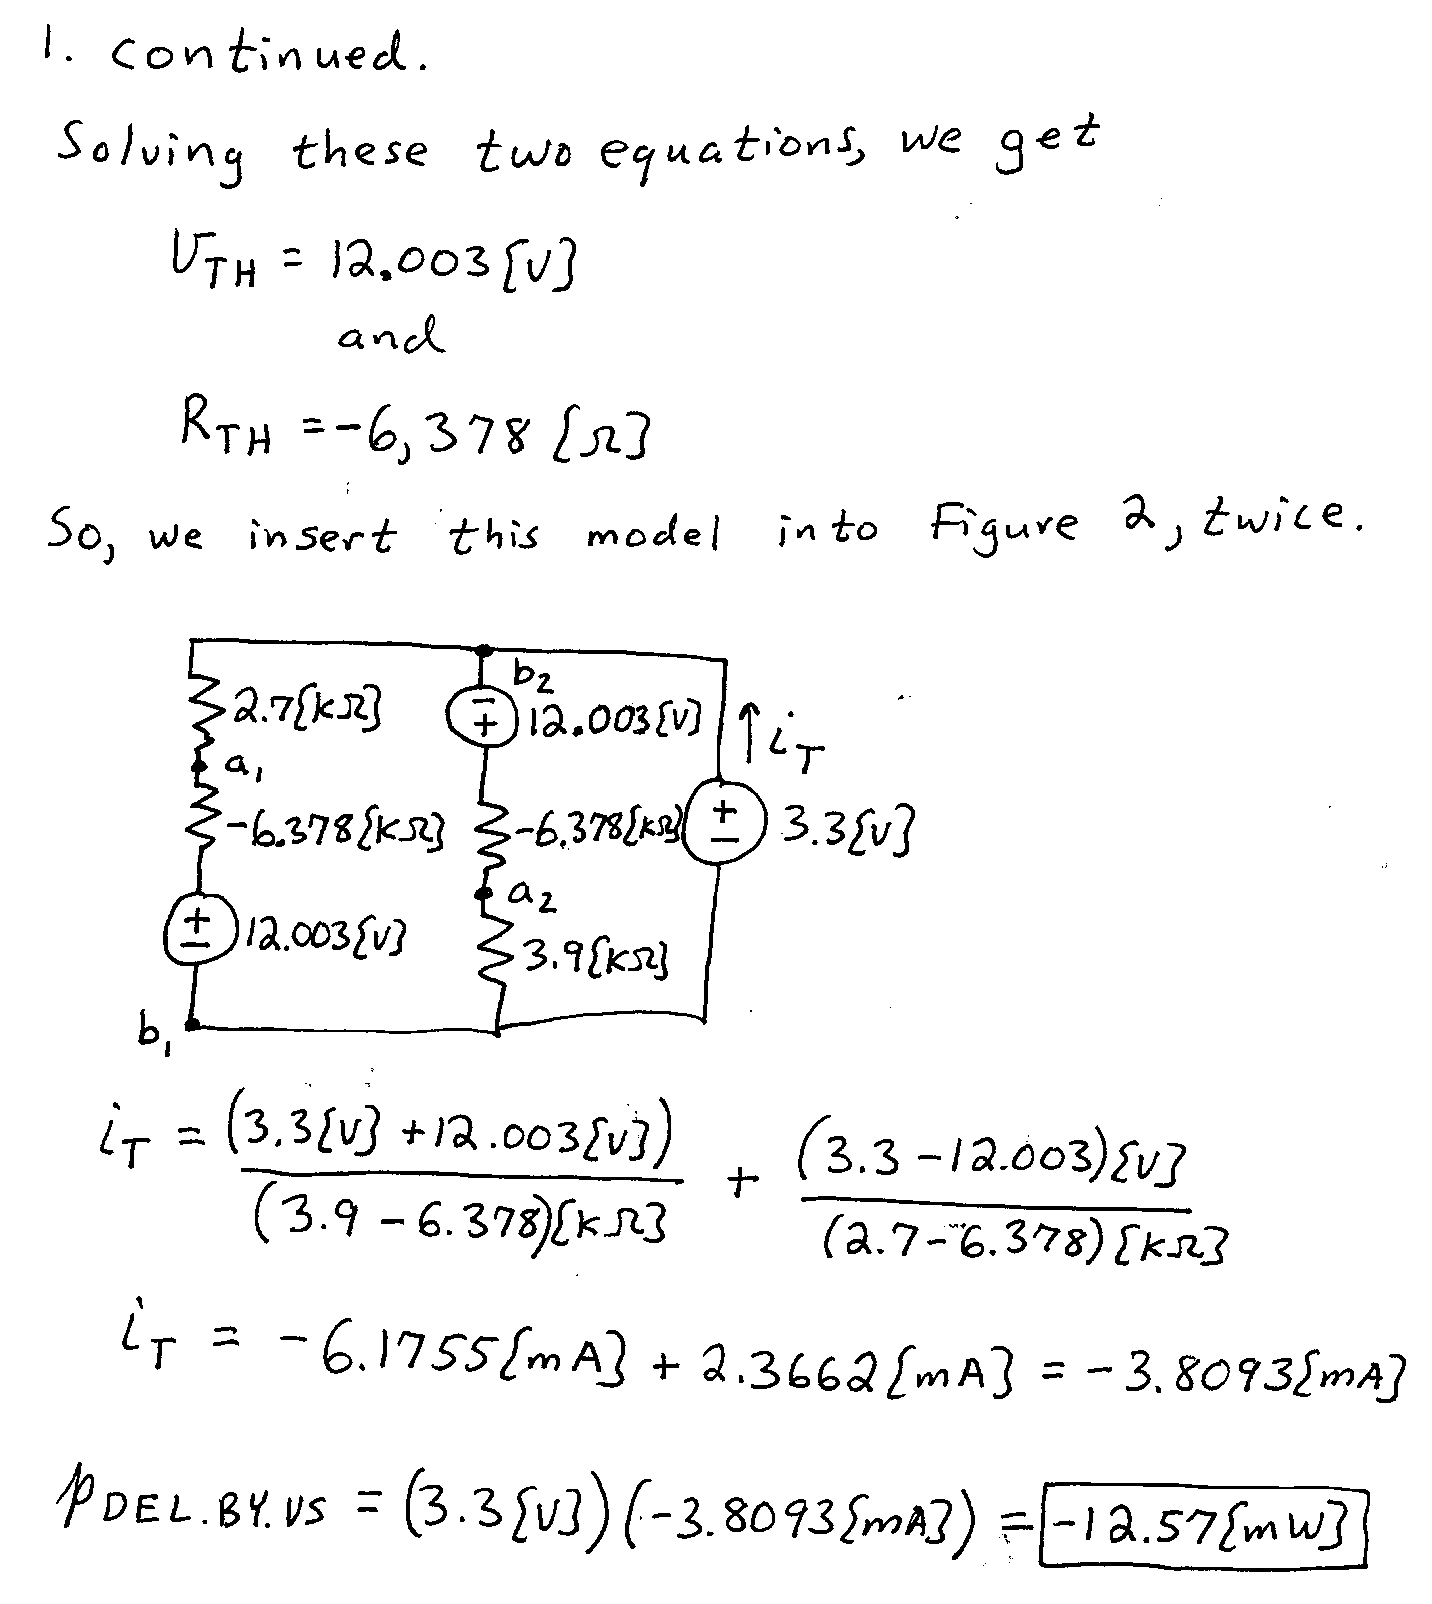 1. continued.
Solving these two equations, we get
VTH = 12.003 [V]
and
RTH = -6,378 [Ω]
So, we insert this model into Figure 2, twice.
b2
2.7[kΩ]
- +
12.003[V]
iT
a1
-6.378[kΩ]
-6.378[kΩ]
+ -
3.3[V]
a2
+ -
12.003[V]
3.9[kΩ]
b1
iT = (3.3[V] + 12.003[V]) / (3.9 - 6.378)[kΩ] + (3.3 - 12.003)[V] / (2.7 - 6.378)[kΩ]
iT = -6.1755[mA] + 2.3662[mA] = -3.8093[mA]
pDEL.BY.VS = (3.3[V])(-3.8093[mA]) = -12.57[mW]